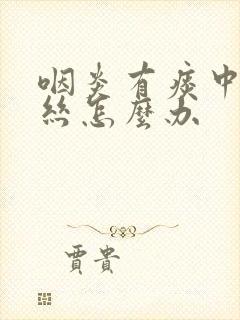 咽炎有痰中
絲怎麼办
賈貴